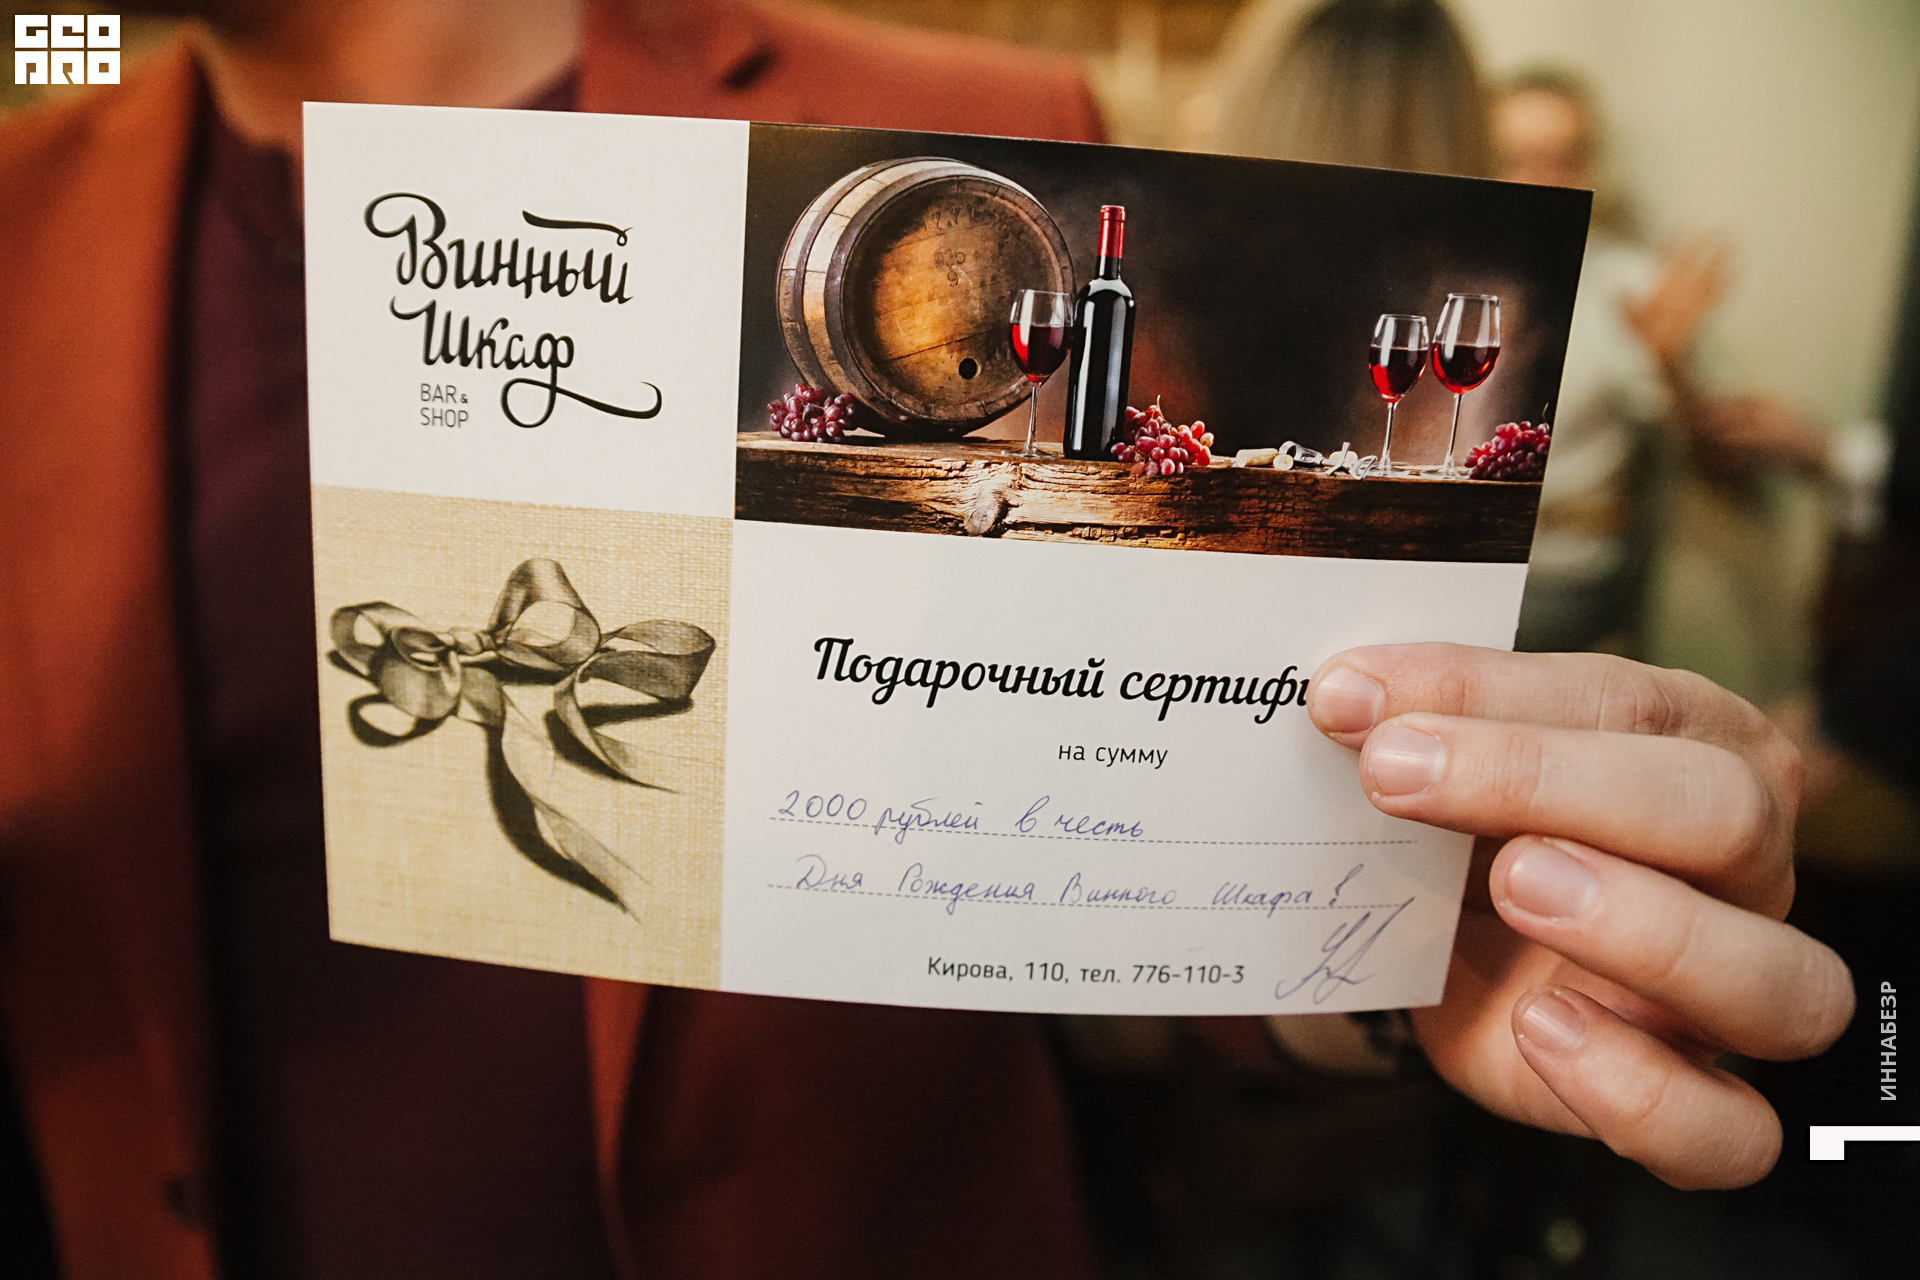 GEO
PRO
Винный
Шкаф
BAR &
SHOP
Подарочный сертифи
на сумму
2000 рублей в честь
Дня Рождения Винного Шкафа!
Кирова, 110, тел. 776-110-3
ИННАБЕЗР